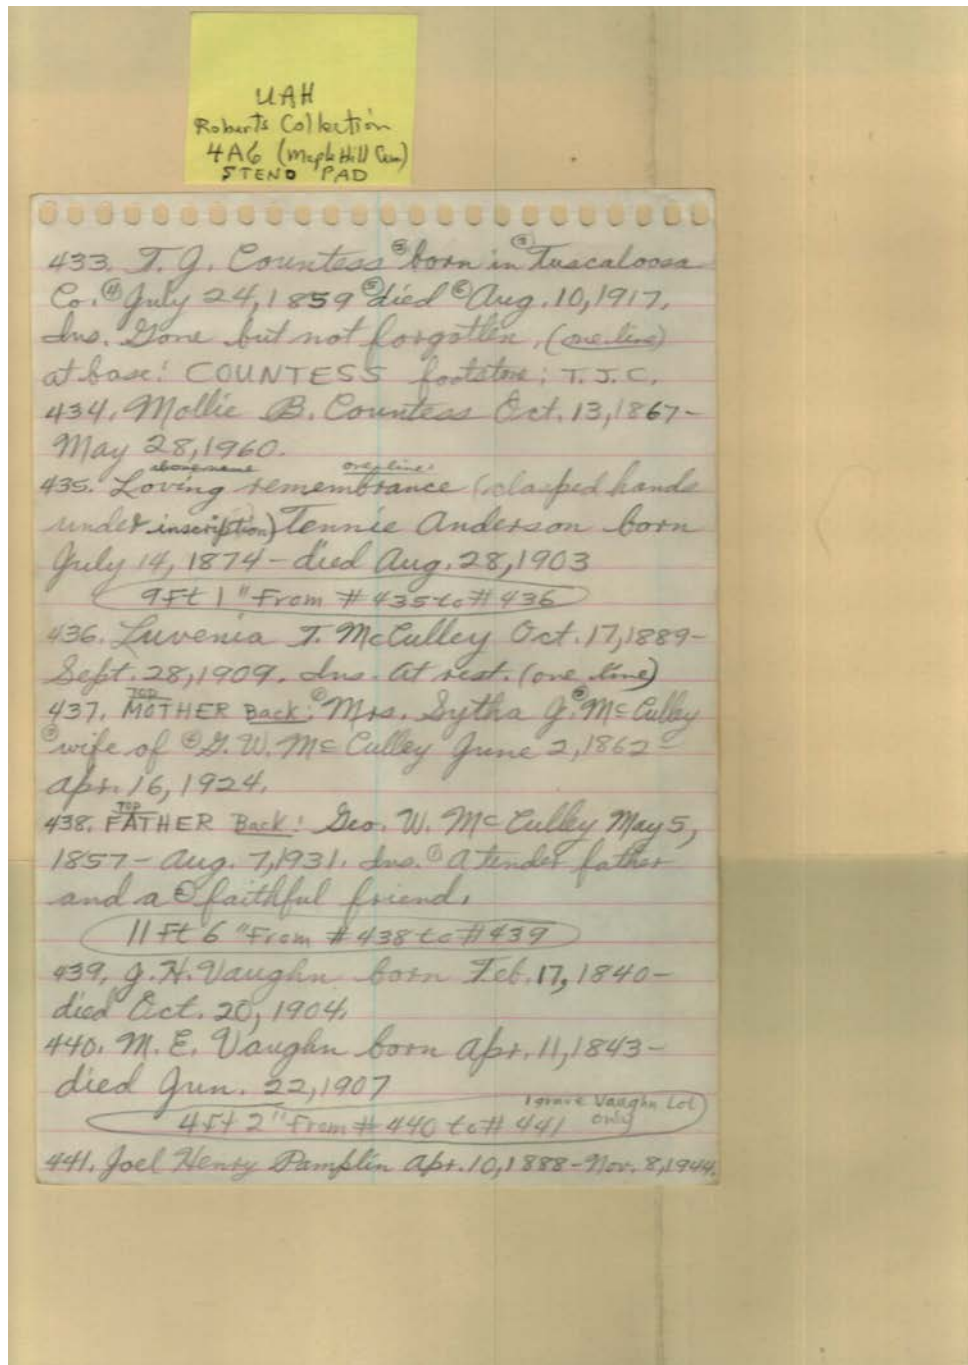 UAH
Roberts Collection
4A6 (Maple Hill Cem)
STENO PAD
433. T. J. Countess ② born in ③ Tuscaloosa
Co. ④ July 24, 1859 ⑤ died ⑥ Aug. 10, 1917.
Ins. Gone but not forgotten. (one line)
at base: COUNTESS footstone: T.J.C.
434. Mollie B. Countess Oct. 13, 1867-
May 28, 1960.
above name one line:
435. Loving remembrance (clasped hands
under inscription) Tennie Anderson born
July 14, 1874 - died Aug. 28, 1903
9 Ft 1" From # 435 to # 436
436. Luvenia T. McCulley Oct. 17, 1889-
Sept. 28, 1909. Ins. At rest. (one line)
437. TOP MOTHER Back: ① Mrs. Sytha J. ② McCulley
③ wife of ④ G. W. McCulley June 2, 1862-
Apr. 16, 1924.
438. TOP FATHER Back: Geo. W. McCulley May 5,
1857 - Aug. 7, 1931. Ins. ① A tender father
and a ② faithful friend.
11 Ft 6" From # 438 to # 439
439. J. H. Vaughn born Feb. 17, 1840-
died Oct. 20, 1904.
440. M. E. Vaughn born Apr. 11, 1843-
died Jun. 22, 1907
1 grave Vaughn Lot
4 Ft 2" From # 440 to # 441 only
441. Joel Henry Pamplin Apr. 10, 1888 - Nov. 8, 1944.